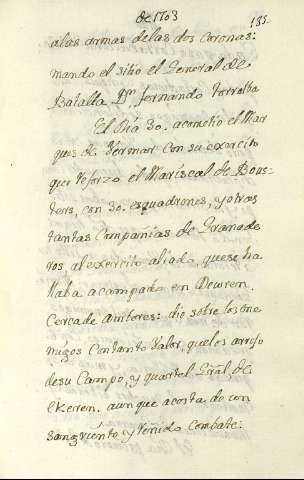 de 1703
185.
a las armas de las dos Coronas:
mando el sitio el General de
Batalla Dn. fernando torralba
El Dia 30. acometio el Mar
ques de Versmar con su exercito
que reforzo el Mariscal de Bous-
ters, con 30. esquadrones, y otras
tantas Companias de Granade
ros al exercito aliado, que se ha
llaba acampado en Dewren.
Cerca de amberes: dio sobre los ene
migos con tanto valor, que los arrojo
de su Campo, y quartel Gral, de
Ekeren. aunque a costa de un
sangriento y renido combate: